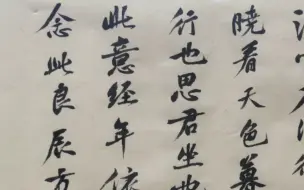 晓看天色暮
行也思君坐也
此意经年依
念此良辰方